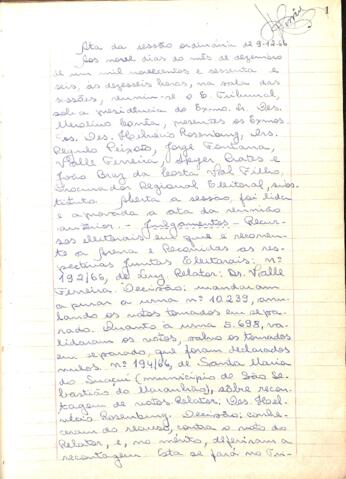 1
Ata da sessão ordinária de 9-12-66
Aos nove dias do mês de dezembro
de um mil novecentos e sessenta e
seis, às dezesseis horas, na sala das
sessões, reuniu-se o E. Tribunal,
sob a presidência do Exmo. Sr. Des.
Merolino Corrêa, presentes os Exmos
Srs. Des. Helvécio Rosenburg, Drs.
Régulo Peixoto, Jorge Fontana,
Valle Ferreira, e
João Braz da Costa Val Filho,
Procurador Regional Eleitoral, subs-
tituto. Aberta a sessão, foi lida
e aprovada a ata da reunião
anterior. - Julgamentos - Recur-
sos eleitorais em que é recorren-
te a Arena e Recorridas as res-
pectivas Juntas Eleitorais: nº
192/66, de Luz. Relator: Dr. Valle
Ferreira. Decisão: mandaram
apurar a urna nº 10.239, anu-
lando os votos tomados em separa-
rado. Quanto à urna 5.698, va-
lidaram os votos, salvo os tomados
em separado, que foram declarados
nulos. nº 194/66, de Santa Maria
do Suaçui (município de São Se-
bastião do Maranhão), sôbre recon-
tagem de votos. Relator: Des. Hel-
vécio Rosenburg. Decisão: conhe-
ceram do recurso, contra o voto do
Relator, e, no mérito, deferiram a
recontagem. Esta se fará no Tri-